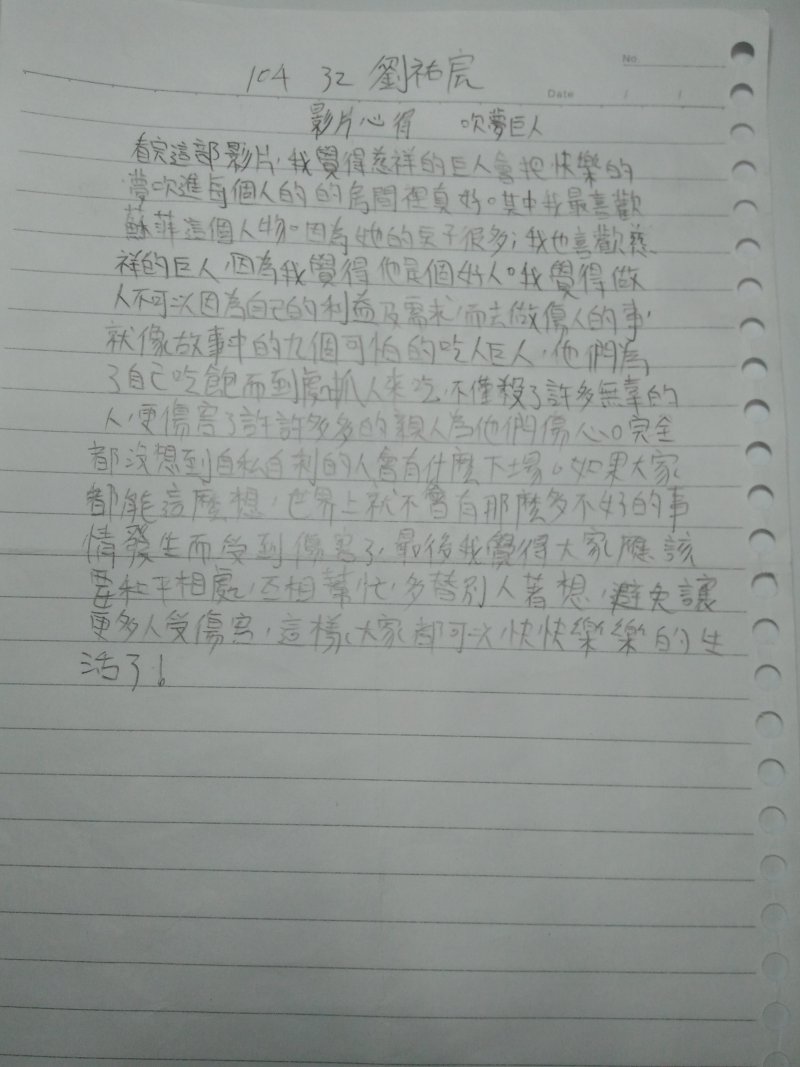 No
Date / /
104 32 劉祐宸
影片心得 吹夢巨人
看完這部影片,我覺得慈祥的巨人會把快樂的
夢吹進每個人的的房間裡真好。其中我最喜歡
蘇菲這個人物。因為她的點子很多;我也喜歡慈
祥的巨人,因為我覺得他是個好人。我覺得做
人不可以因為自己的利益及需求,而去做傷人的事,
就像故事中的九個可怕的吃人巨人,他們為
了自己吃飽而到處抓人來吃,不僅殺了許多無辜的
人,更傷害了許許多多的親人為他們傷心。完全
都沒想到自私自利的人會有什麼下場。如果大家
都能這麼想,世界上就不會有那麼多不好的事
情發生而受到傷害了,最後我覺得大家應該
要和平相處,互相幫忙,多替別人著想,避免讓
更多人受傷害,這樣大家都可以快快樂樂的生
活了!